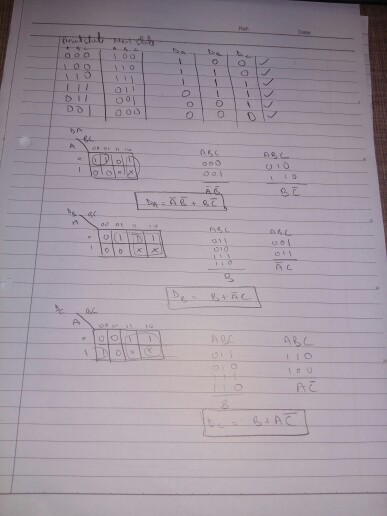 Present State Next State
A B C A B C DA DB DC
000 100 1 0 0 ✓
100 110 1 1 0 ✓
110 111 1 1 1 ✓
111 011 0 1 1 ✓
011 001 0 0 1 ✓
001 000 0 0 0 ✓
DA
BC
A 00 01 11 10
0 1 1 0 1
1 0 0 0 X
ABC ABC
000 010
001 110
A̅B̅ BC̅
DA = A̅B̅ + BC̅
DB BC
A 00 01 11 10
0 0 1 1 1
1 0 0 X X
ABC ABC
011 001
010 011
111 A̅C
110
B
DB = B + A̅C
BC
A 00 01 11 10
0 0 0 1 1
1 0 0 X
ABC ABC
011 110
010 100
111 AC̅
110
B
DC = B + AC̅